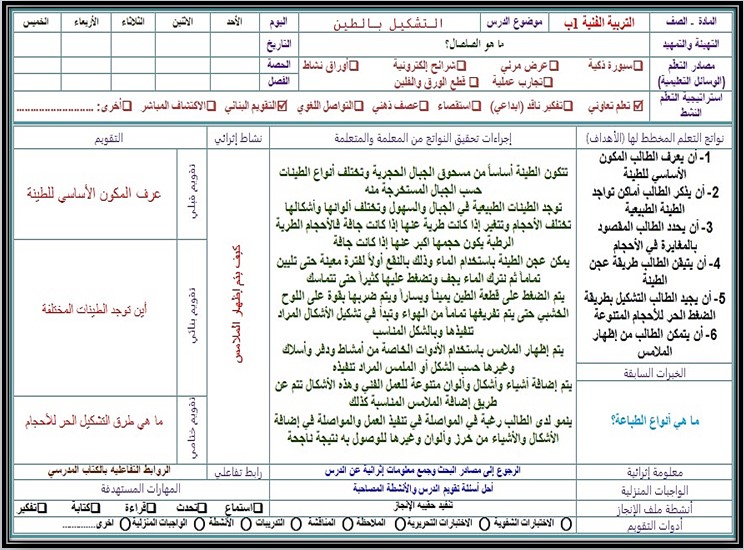 المادة - الصف
التربية الفنية 1ب
موضوع الدرس
التشكيل بالطين
اليوم
الأحد
الاثنين
الثلاثاء
الأربعاء
الخميس
التهيئة والتمهيد
ما هو الصلصال؟
التاريخ
مصادر التعلم
(الوسائل التعليمية)
سبورة ذكية
عرض مرئي
شرائح إلكترونية
أوراق نشاط
تجارب عملية
قطع الورق والفلين
الحصة
الفصل
استراتيجية التعلم
النشط
تعلم تعاوني
تفكير ناقد (ابداعي)
استقصاء
عصف ذهني
التواصل اللغوي
التقويم البنائي
الاكتشاف المباشر
أخرى: ..........................
نواتج التعلم المخطط لها (الأهداف)
إجراءات تحقيق النواتج من المعلمة والمتعلمة
نشاط إثرائي
التقويم
1- أن يعرف الطالب المكون
الأساسي للطينة
2- أن يذكر الطالب أماكن تواجد
الطينة الطبيعية
3- أن يحدد الطالب المقصود
بالمغايرة في الأحجام
4- أن يتيقن الطالب طريقة عجن
الطينة
5- أن يجيد الطالب التشكيل بطريقة
الضغط الحر للأحجام المتنوعة
6- أن يتمكن الطالب من إظهار
الملامس
الخبرات السابقة
ما هي أنواع الطباعة؟
تتكون الطينة أساساً من مسحوق الجبال الحجرية وتختلف أنواع الطينات
حسب الجبال المستخرجة منه
توجد الطينات الطبيعية في الجبال والسهول وتختلف ألوانها وأشكالها
تختلف الأحجام وتتغير إذا كانت طرية عنها إذا كانت جافة فالأحجام الطرية
الرطبة يكون حجمها اكبر عنها إذا كانت جافة
يمكن عجن الطينة باستخدام الماء وذلك بالنقع أولاً لفترة معينة حتى تليين
تماماً ثم نترك الماء يجف وتضغط عليها كثيراً حتى تتماسك
يتم الضغط على قطعة الطين يميناً ويساراً ويتم ضربها بقوة على اللوح
الخشبي حتى يتم تفريغها تماماً من الهواء وتبدأ في تشكيل الأشكال المراد
تنفيذها وبالشكل المناسب
يتم إظهار الملامس باستخدام الأدوات الخاصة من أمشاط ودفر وأسلاك
وغيرها حسب الشكل أو الملمس المراد تنفيذه
يتم إضافة أشياء وأشكال وألوان متنوعة للعمل الفني وهذه الأشكال تتم عن
طريق إضافة الملامس المناسبة كذلك
ينمو لدى الطالب رغبة في المواصلة في تنفيذ العمل والمواصلة في إضافة
الأشكال والأشياء من خرز وألوان وغيرها للوصول به نتيجة ناجحة
كيف يتم إظهار الملامس
تقويم قبلي
عرف المكون الأساسي للطينة
تقويم بنائي
أين توجد الطينات المختلفة
تقويم ختامي
ما هي طرق التشكيل الحر للأحجام
معلومة إثرائية
الرجوع إلى مصادر البحث وجمع معلومات إثرائية عن الدرس
رابط تفاعلي
الروابط التفاعليه بالكتاب المدرسي
الواجبات المنزلية
أحل أسئلة تقويم الدرس والأنشطة المصاحبة
المهارات المستهدفة
أنشطة ملف الإنجاز
تنفيذ حقيبه الإنجاز
استماع
تحدث
قراءة
كتابة
تفكير
أدوات التقويم
الاختبارات الشفوية
الاختبارات التحريرية
الملاحظة
المناقشة
التدريبات
الأنشطة
الواجبات المنزلية
اخرى..............